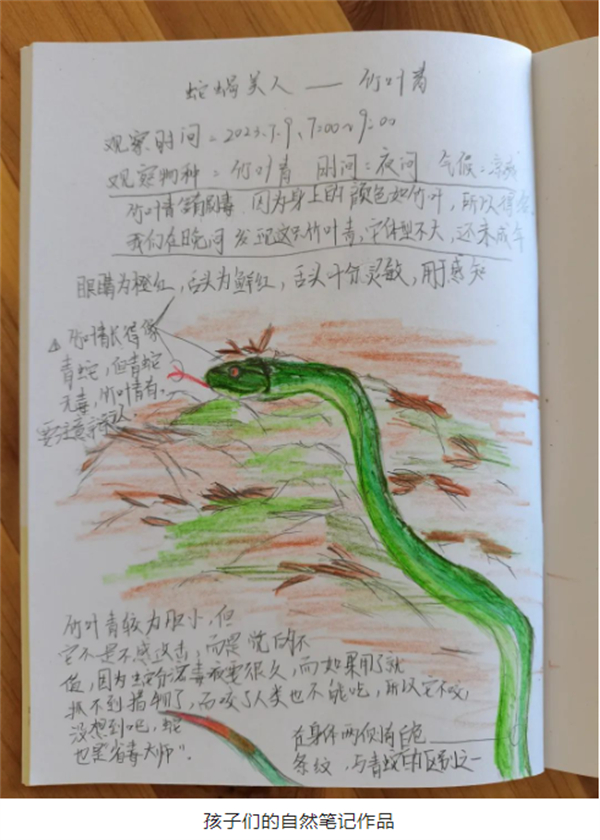 蛇蝎美人 —— 竹叶青
观察时间：2023.7.9、7:00~9:00
观察物种：竹叶青 时间：夜间 气候：凉爽
竹叶青有剧毒 因为身上的颜色如竹叶，所以得名。
我们在晚间发现这只竹叶青，它体型不大，还未成年
眼睛为橙红，舌头为鲜红，舌头十分灵敏，用于感知
竹叶青长得像
青蛇，但青蛇
无毒，竹叶青有。
要注意
竹叶青较为胆小，但
它不是不感攻击，而是觉的不
值，因为蛇分泌毒液要很久，而如果用了就
抓不到猎物了，而咬了人类也不能吃，所以它不咬，
没想到吧，蛇
也是“省毒大师”。
在身体两侧有白色
条纹，与青蛇的区别之一
孩子们的自然笔记作品